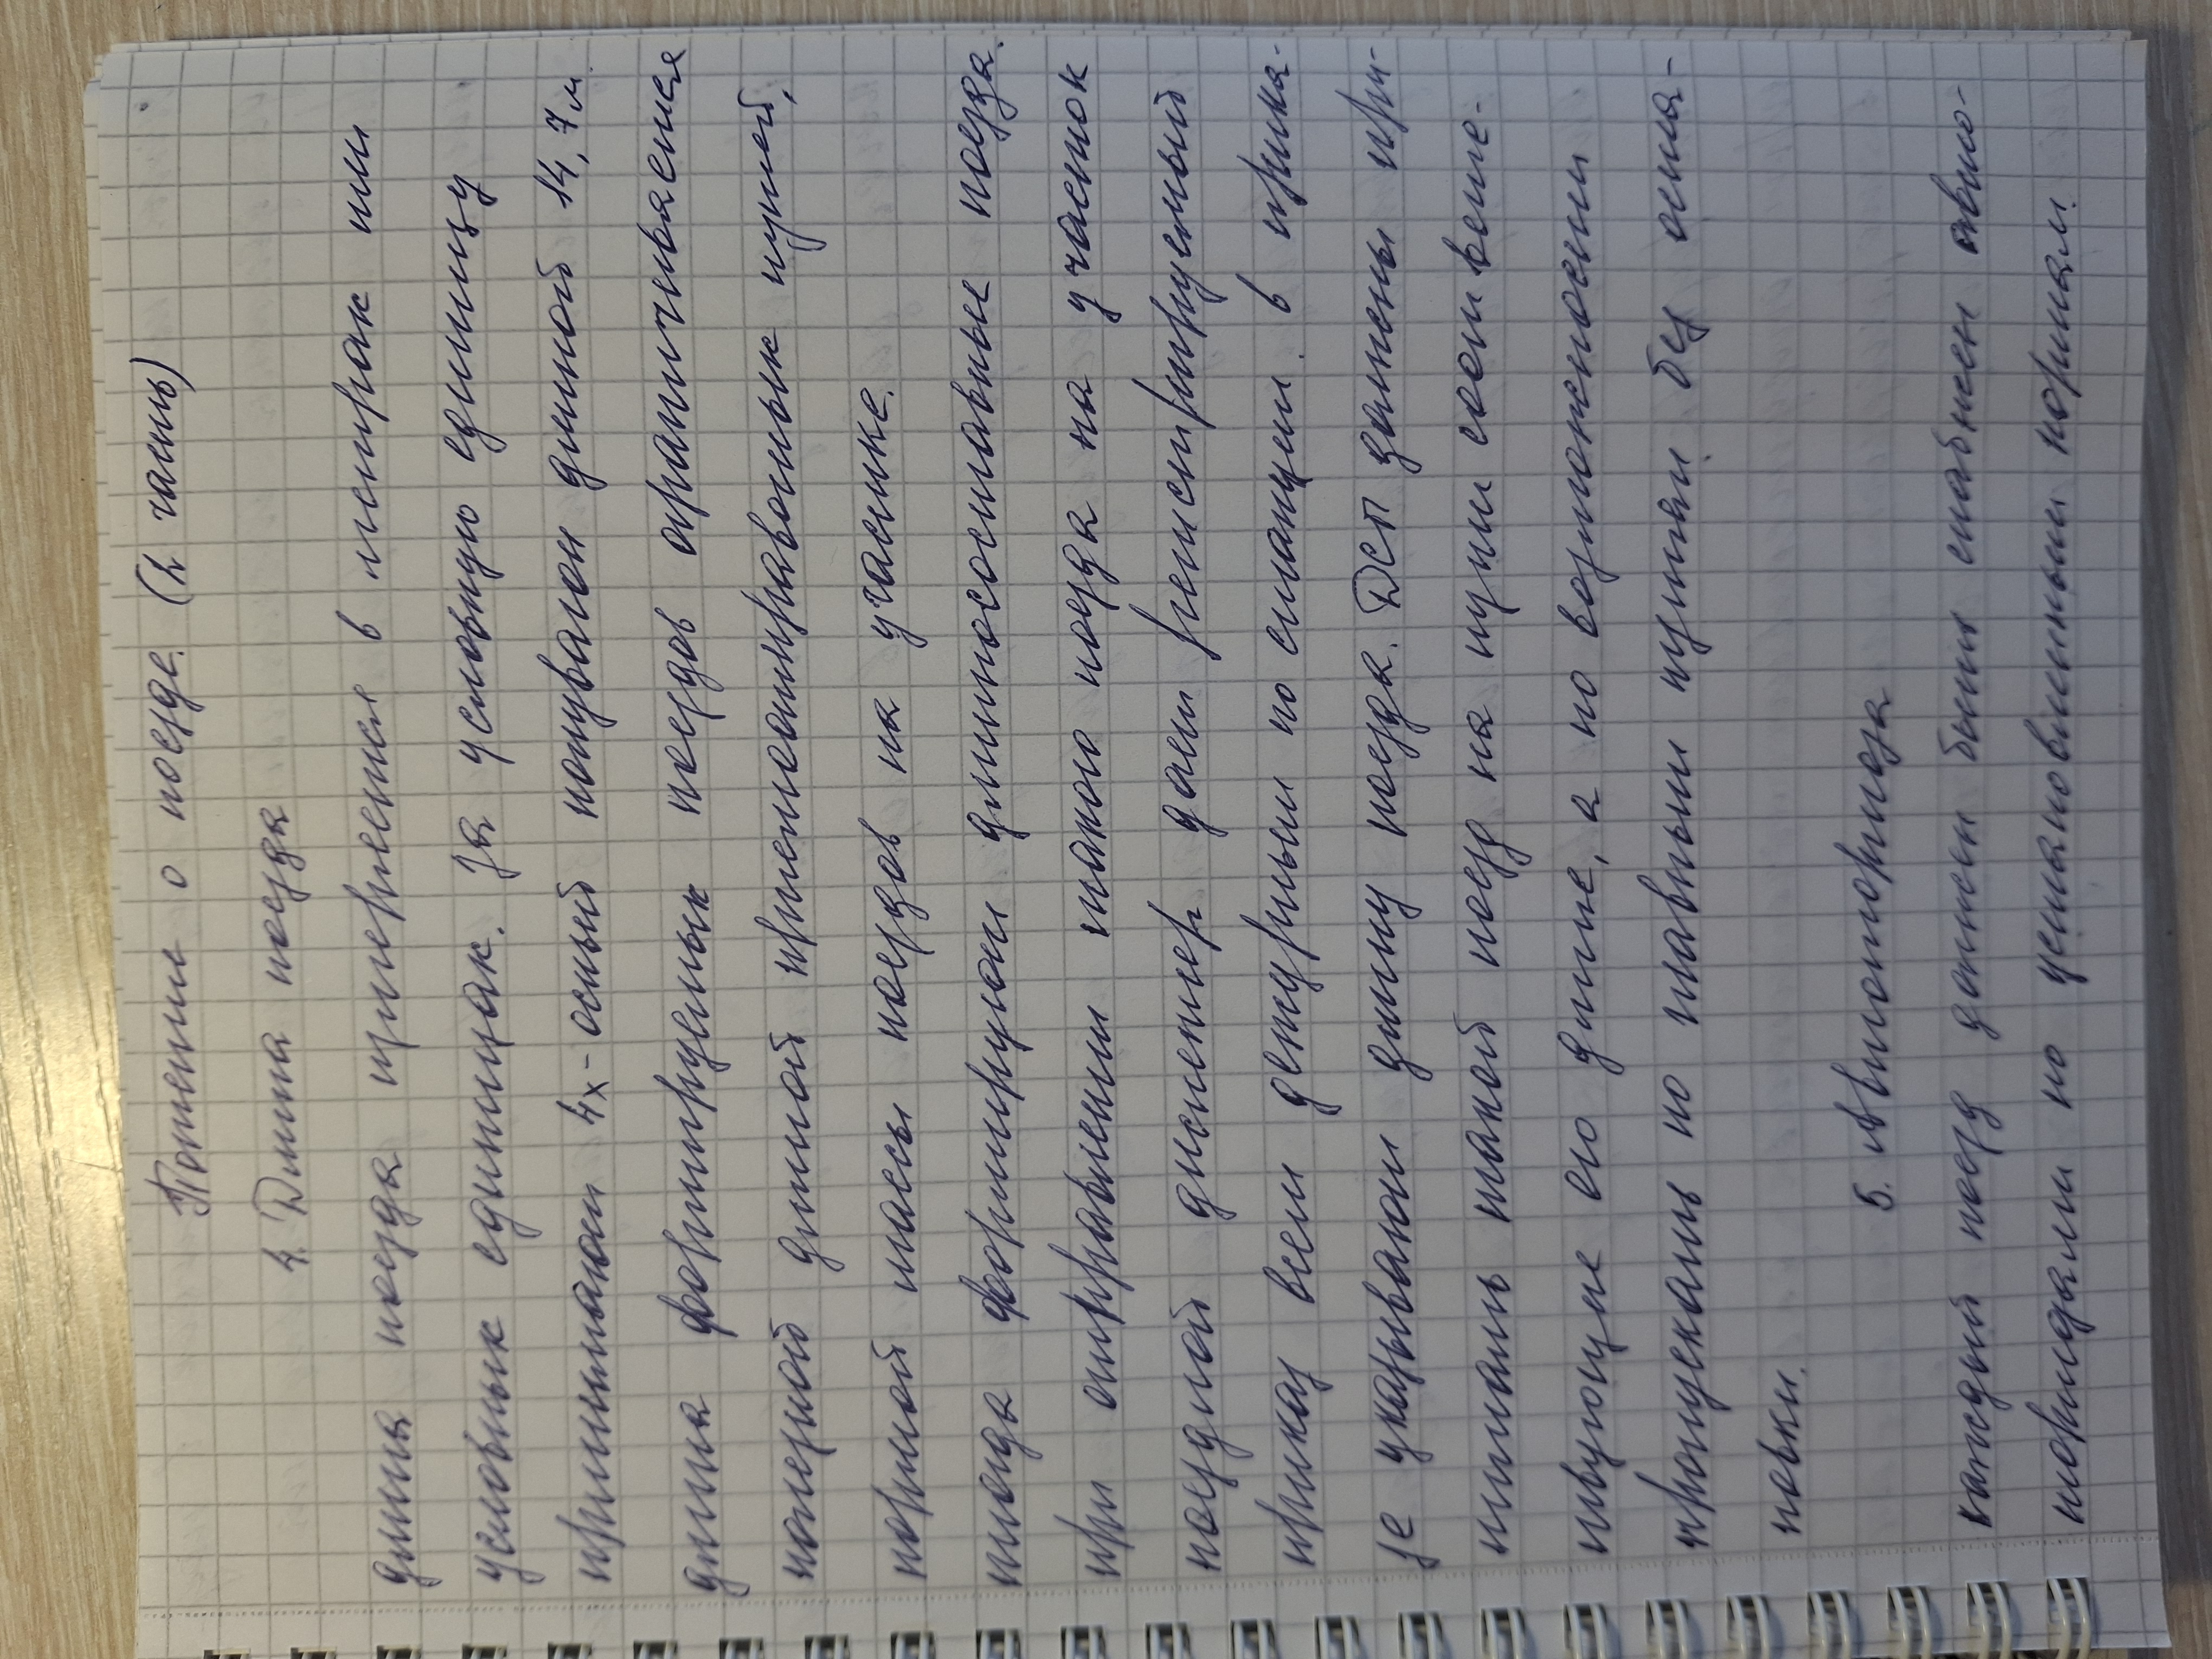 Понятие о поезде. (2 часть)
4. Длина поезда
Длина поезда измеряется в метрах или
условных единицах. За условную единицу
принимают 4х-осный полувагон длиной 14,7м.
Длина формируемых поездов ограничивается
полезной длиной приемоотправочных путей,
нормой массы поездов на участке.
Иногда формируют длинносоставные поезда.
При отправлении такого поезда на участок
поездной диспетчер дает регистрируемый
приказ всем дежурным по станции. В прика-
зе указывают длину поезда. ДСП должны при-
нимать такой поезд на пути соответ-
ствующие его длине, а по возможности
пропускать по главным путям без оста-
новки.
5. Автотормоза
Каждый поезд должен быть снабжен авто-
тормозами по установленным нормам.